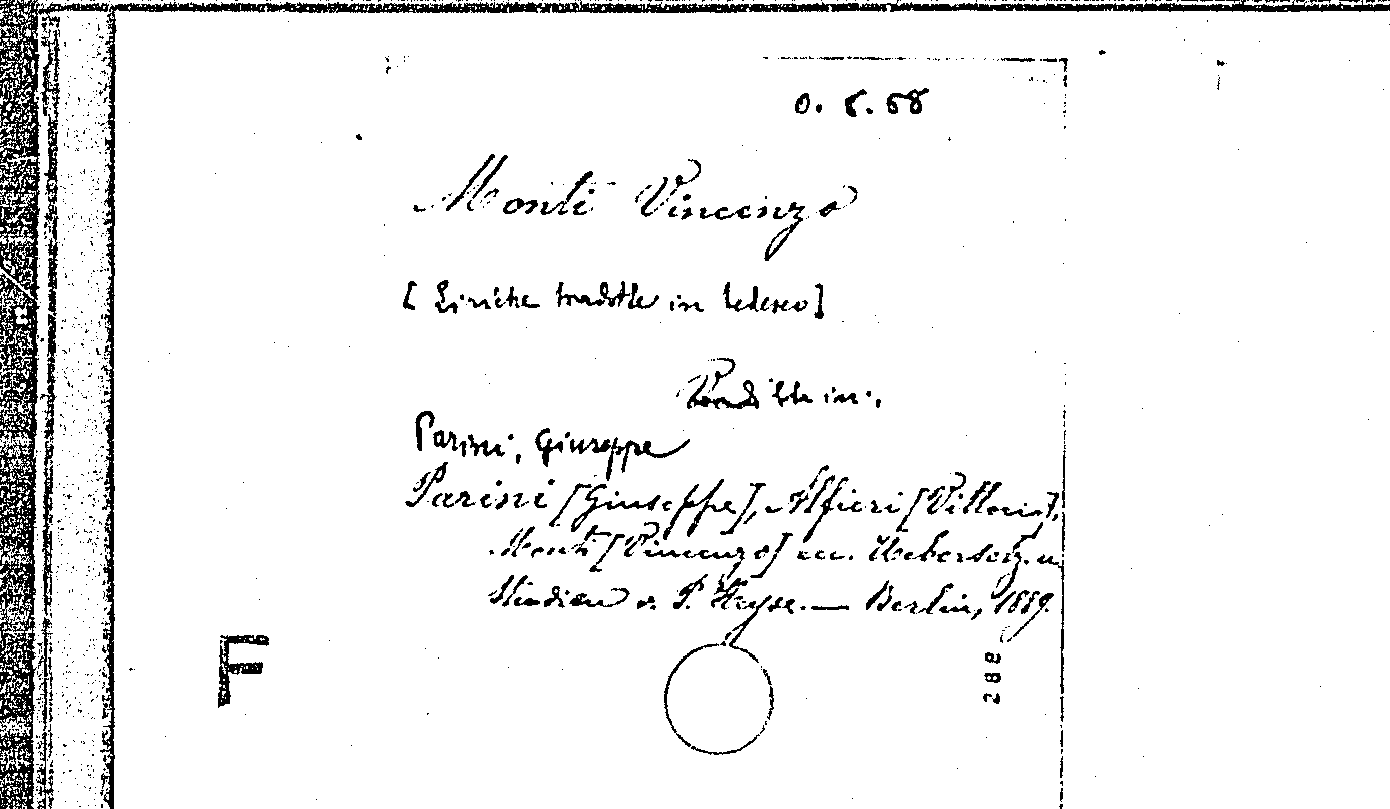 O. 6. 58
Monti Vincenzo
[Liriche tradotte in tedesco]
in:
Parini, Giuseppe
Parini [Giuseppe], Alfieri [Vittorio],
Monti [Vincenzo] ecc. Uebersetz. u.
Studien v. P. Heyse. — Berlin, 1889.
F
288